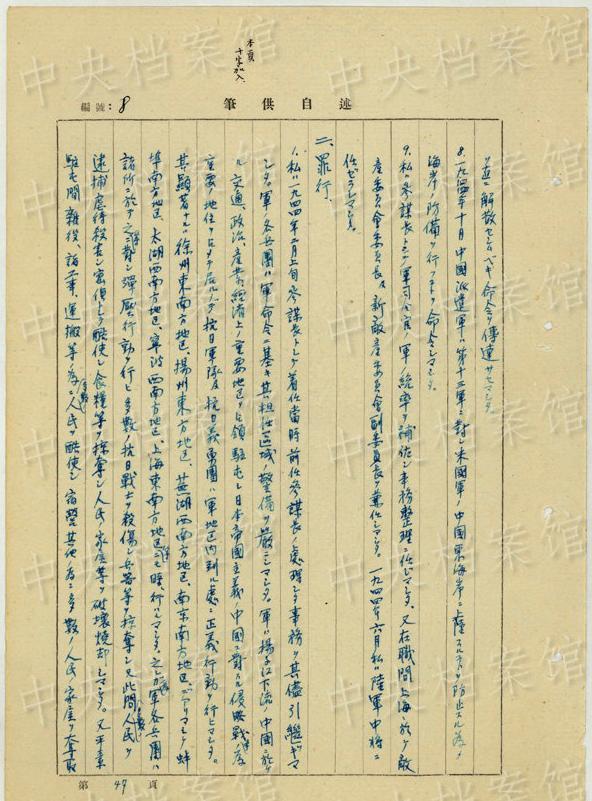 中央档案馆
本頁
十字加入
編號：8
筆供自述
ヲ直ニ解散セシムベキ命令ヲ傳達サセマシタ。
8.一九四四年十月中國派遣軍ハ第十三軍ニ對シ米國軍ノ中國東海岸ニ上陸スルコトヲ防止スル為メ
海岸ノ防備ヲ行フコトヲ命令シマシタ。
9.私ハ參謀長トシテ軍司令官ノ軍ノ統率ヲ補佐シ事務整理ニ任ジマシタ。又在職間上海ニ於テ敵
產委員會委員長及新敵產委員會副委員長ヲ兼任シマシタ。一九四四年六月私ハ陸軍中將ニ
任ゼラレマシタ。
二、罪行、
1.私ハ一九四四年二月上旬參謀長トシテ着任當時前任參謀長ノ處理シタ事務ヲ其儘引繼ギマ
シタ。軍ノ各兵團ハ軍命令ニ基キ其ノ担任區域ノ警備ヲ嚴ニシマシタ。軍ハ揚子江下流ノ中國ニ於ケ
ル交通、政治、產業經濟上ノ重要地區ヲ占領駐屯シ日本帝國主義ノ中國ニ對スル侵略戰ノ為
重要ノ地位ヲ占メテ居ルノデ抗日軍隊及抗日義勇團ハ軍地區內到ル處ニ正義行動ヲ行ヒマシタ。
其ノ顯著ナルハ徐州東南方地區、揚州東方地區、蕪湖西南方地區、南京南方地區デアリマシテ蚌
埠南方地區、太湖西南方地區、寧波西南方地區、上海東南方地區ニモ行ハレマシタ。之レガ為軍各兵團ハ
諸所ニ於テ之ニ對シ彈壓行動ヲ行ヒ多數ノ抗日戰士ヲ殺傷シ兵器等ヲ掠奪シ又此間人民ヲ
逮捕虐待殺害シ密偵トシテ酷使シ食糧等ヲ掠奪シ人民ノ家屋等ヲ破壞燒却シマシタ。又平素
駐屯間雜役、諸工事、運搬等ノ為ニ人民ヲ酷使シ宿營其他ノ為ニ多數ノ人民ノ家屋ヲ奪取
第49頁